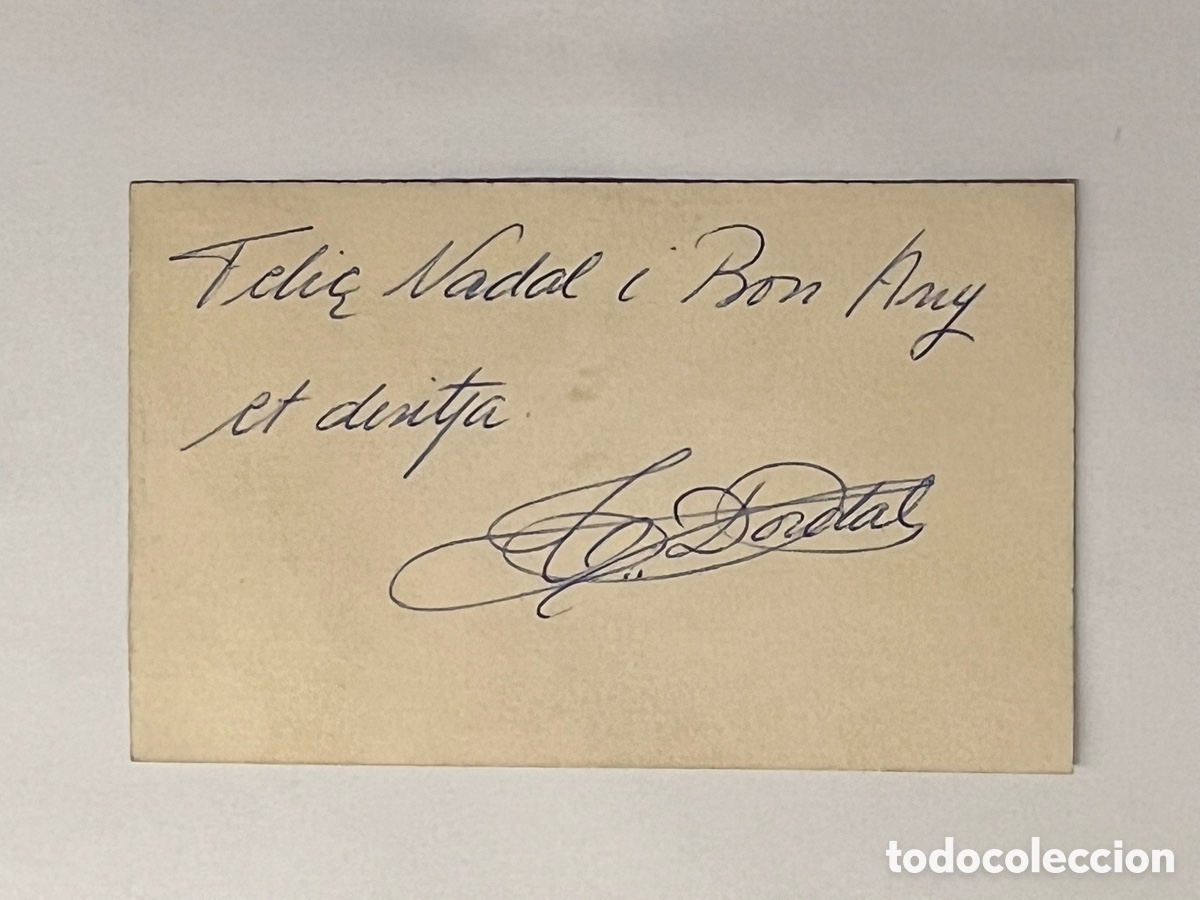 Feliç Nadal i Bon Any
et desitja
Dordal
todocoleccion